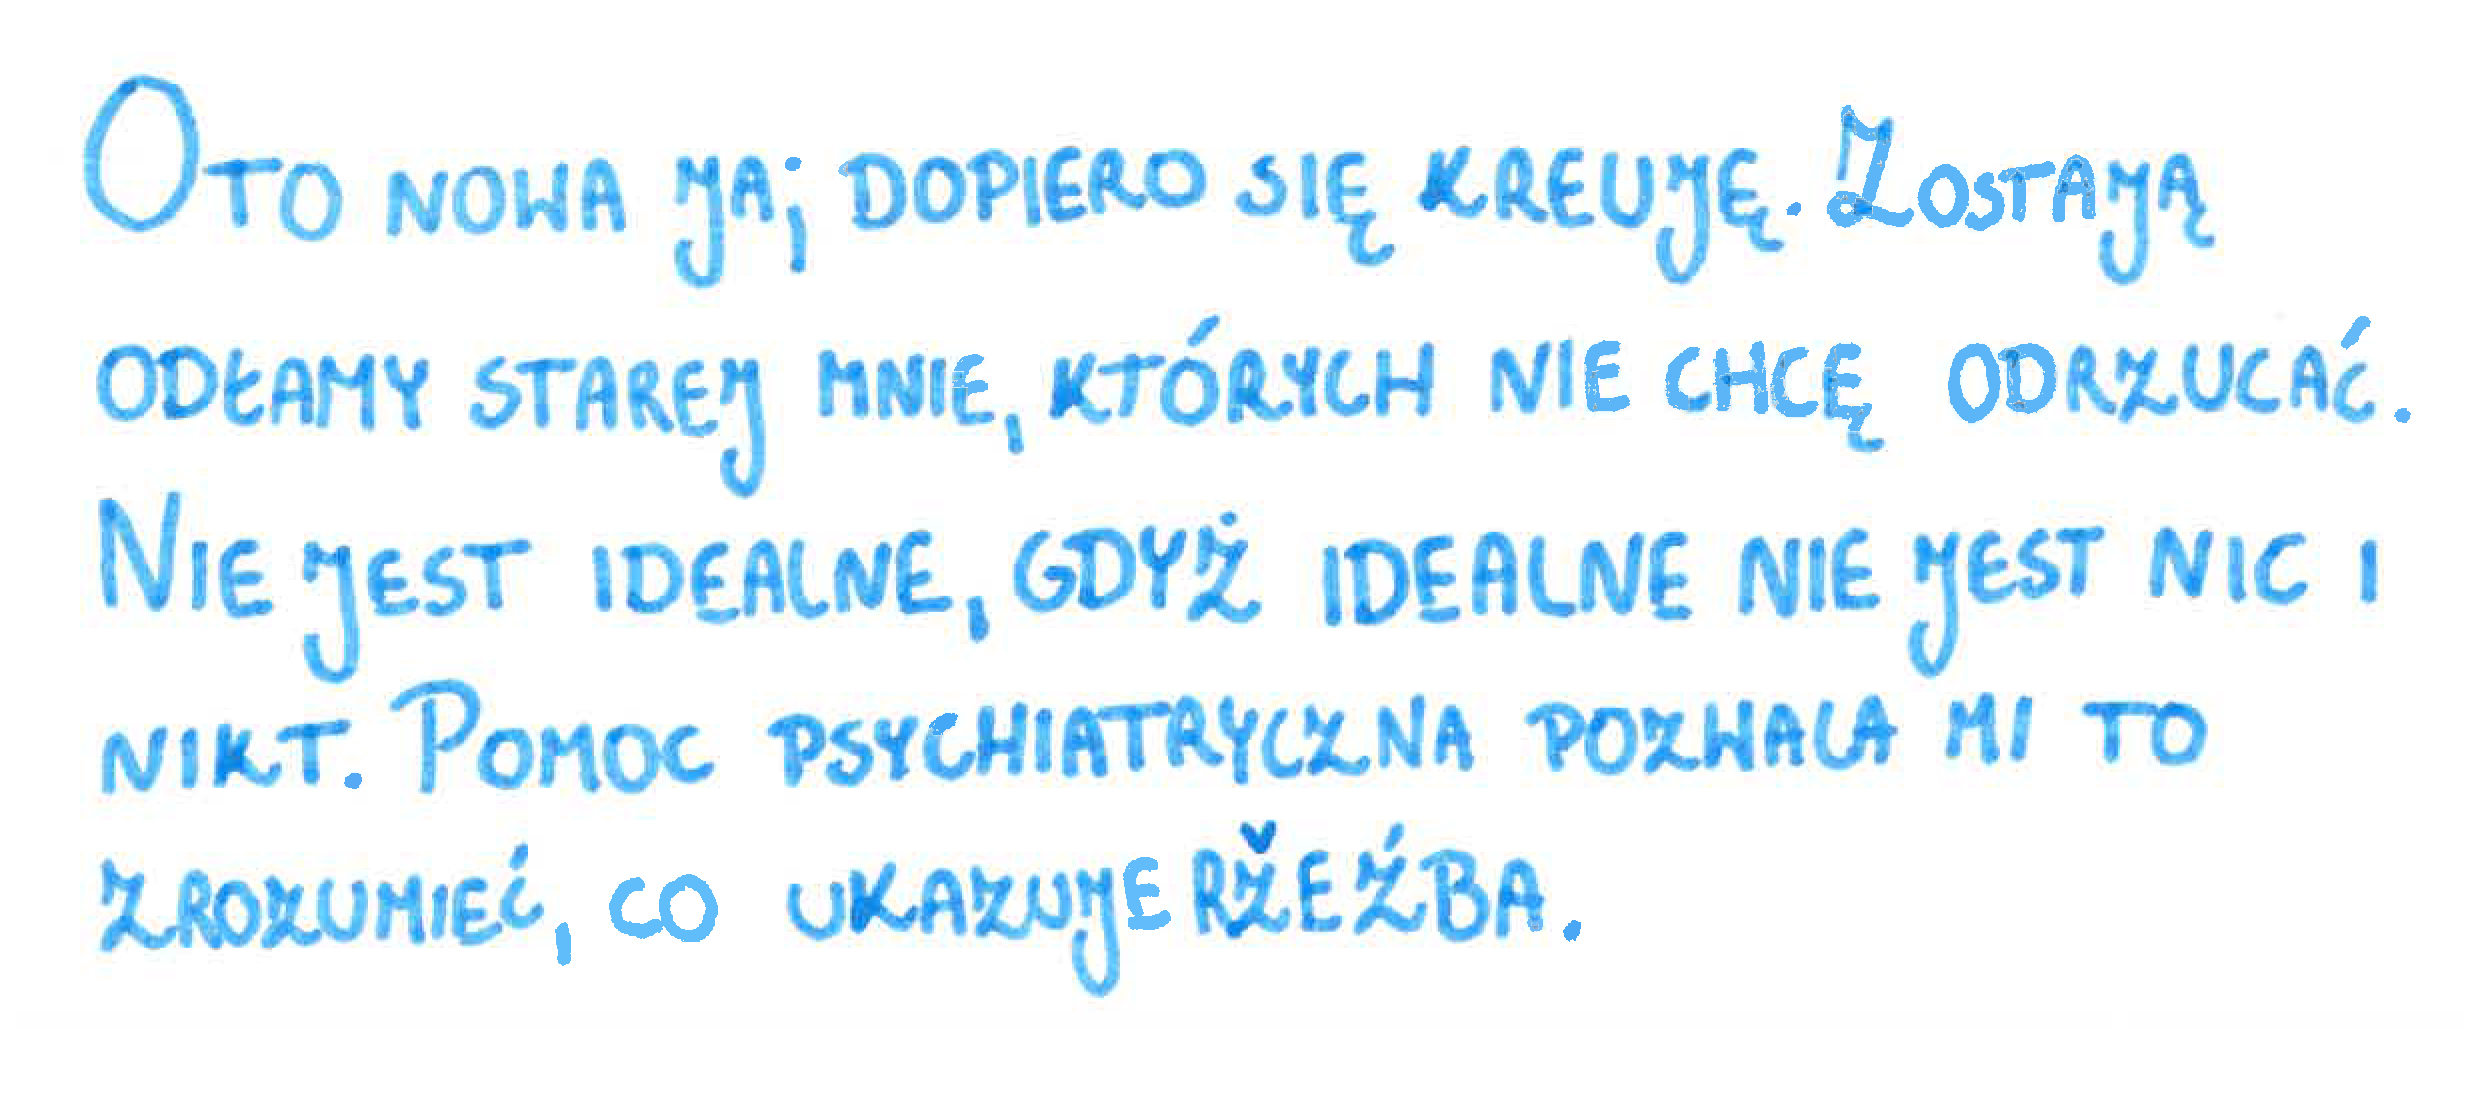 Oto nowa ja; dopiero się kreuję. Zostają
odłamy starej mnie, których nie chcę odrzucać.
Nie jest idealne, gdyż idealne nie jest nic i
nikt. Pomoc psychiatryczna pozwala mi to
zrozumieć, co ukazuje ržeźba.